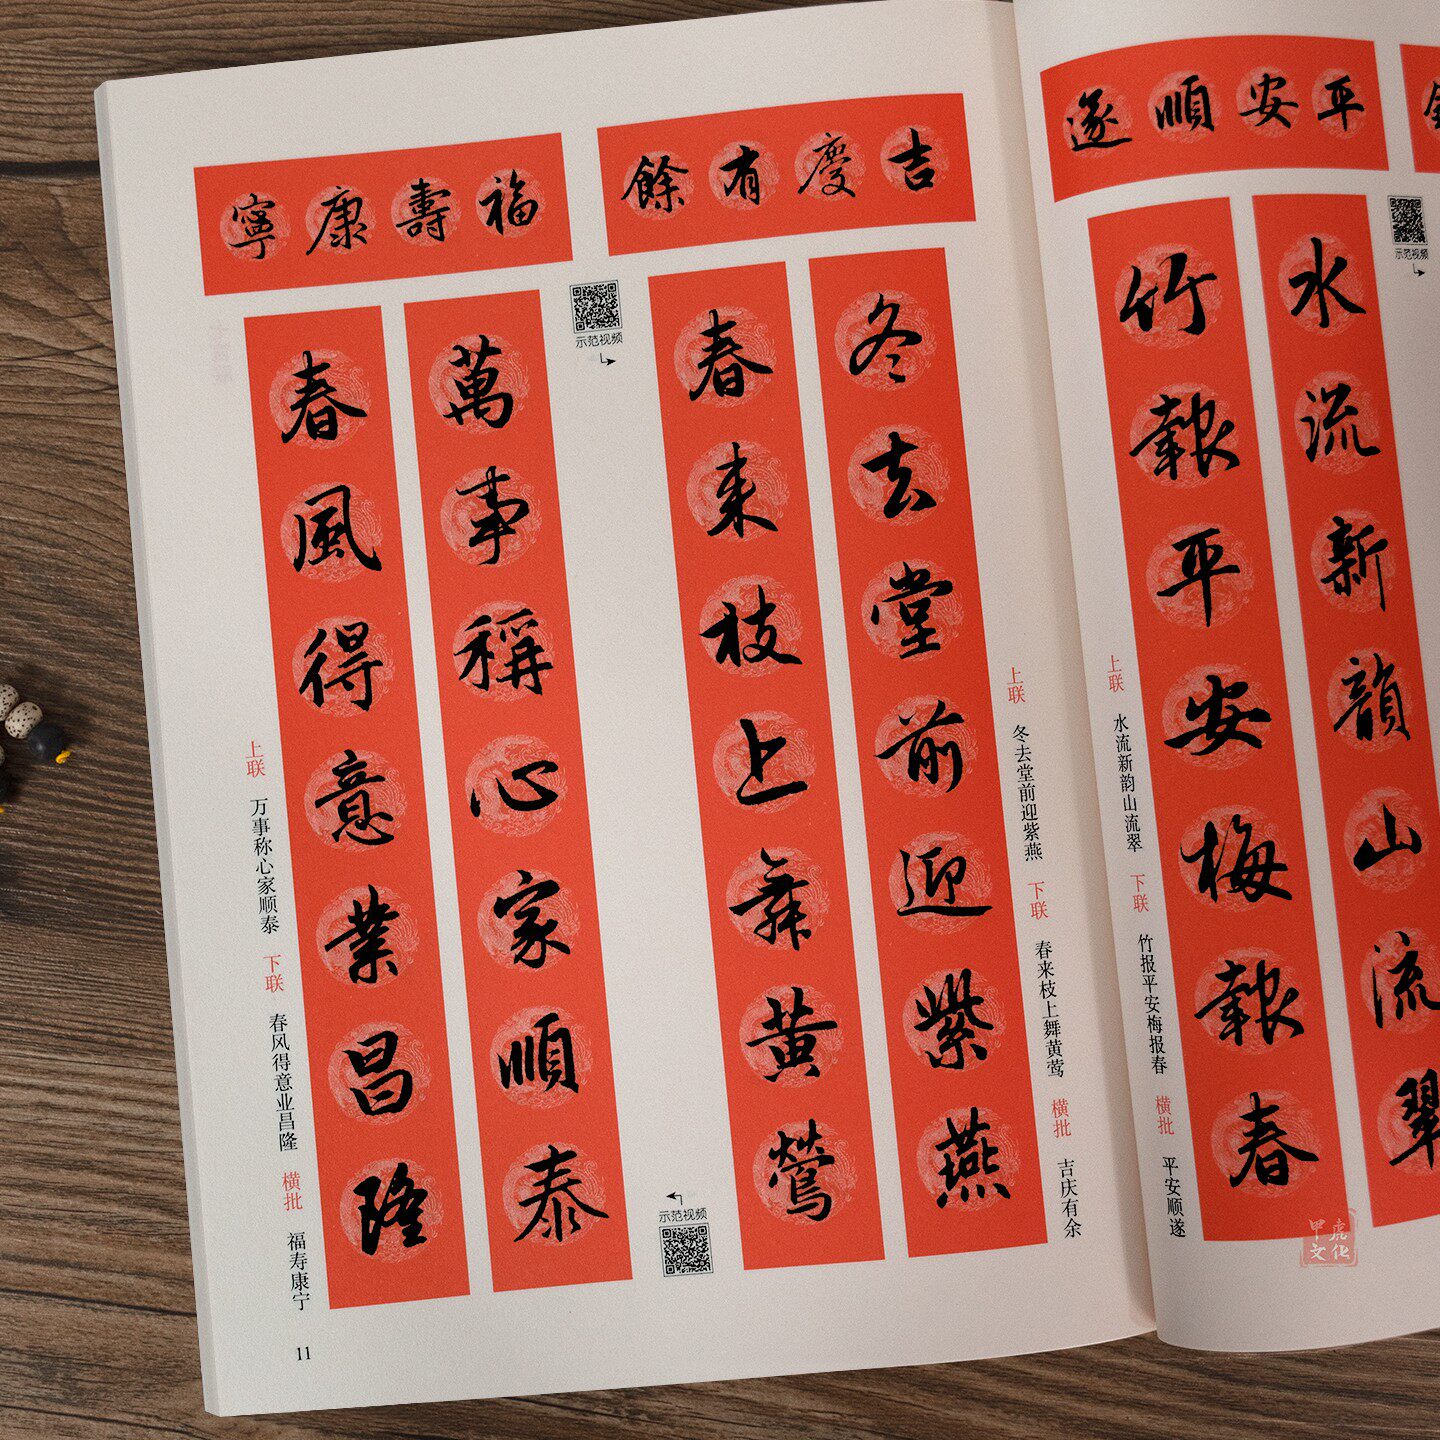 吉慶有餘
冬去堂前迎紫燕
春来枝上舞黄鶯
上联 冬去堂前迎紫燕 下联 春来枝上舞黄莺 横批 吉庆有余
示范视频
示范视频
福壽康寧
萬事稱心家順泰
春風得意業昌隆
上联 万事称心家顺泰 下联 春风得意业昌隆 横批 福寿康宁
11
平安順遂
水流新韻山流翠
竹報平安梅報春
上联 水流新韵山流翠 下联 竹报平安梅报春 横批 平安顺遂
示范视频
甲虎文化